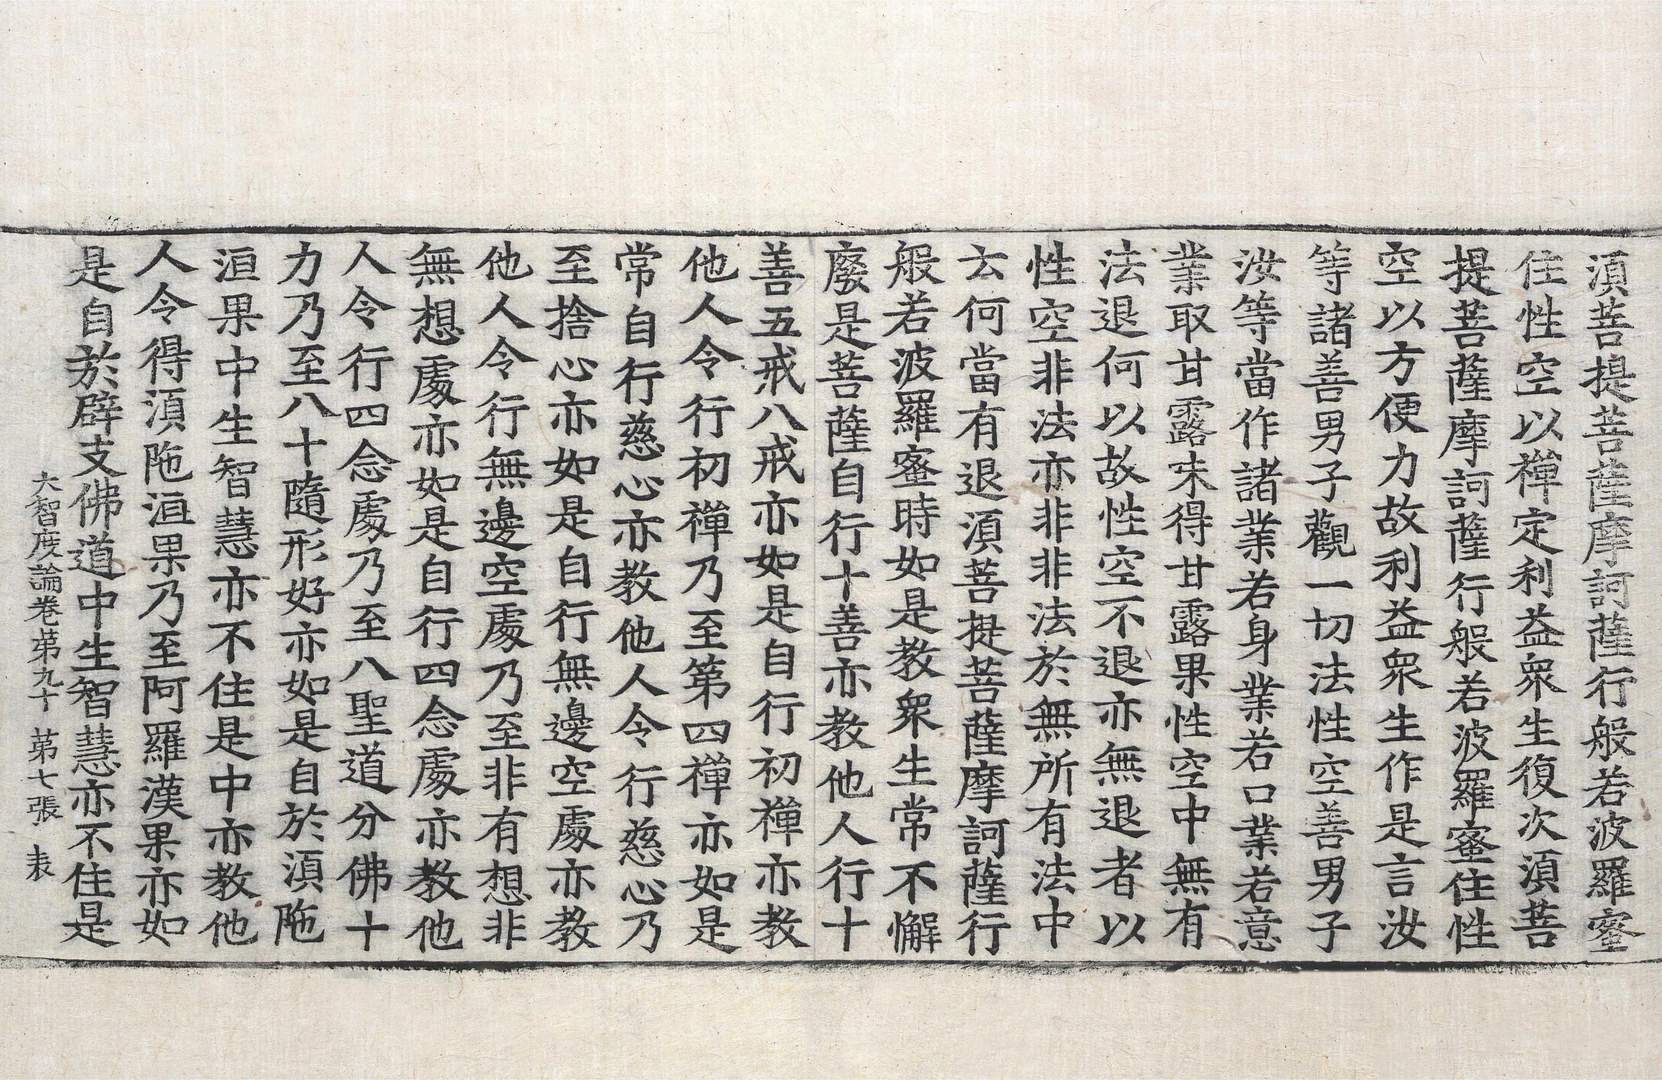 湏菩提菩薩摩訶薩行般若波羅蜜
住性空以禪定利益衆生復次湏菩
提菩薩摩訶薩行般若波羅蜜住性
空以方便力故利益衆生作是言汝
等諸善男子觀一切法性空善男子
汝等當作諸業若身業若口業若意
業取甘露味得甘露果性空中無有
法退何以故性空不退亦無退者以
性空非法亦非非法於無所有法中
云何當有退湏菩提菩薩摩訶薩行
般若波羅蜜時如是教衆生常不懈
廢是菩薩自行十善亦教他人行十
善五戒八戒亦如是自行初禪亦教
他人令行初禪乃至第四禪亦如是
常自行慈心亦教他人令行慈心乃
至捨心亦如是自行無邊空處亦教
他人令行無邊空處乃至非有想非
無想處亦如是自行四念處亦教他
人令行四念處乃至八聖道分佛十
力乃至八十隨形好亦如是自於湏陁
洹果中生智慧亦不住是中亦教他
人令得湏陁洹果乃至阿羅漢果亦如
是自於辟支佛道中生智慧亦不住是
大智度論卷苐九十 苐七張 表